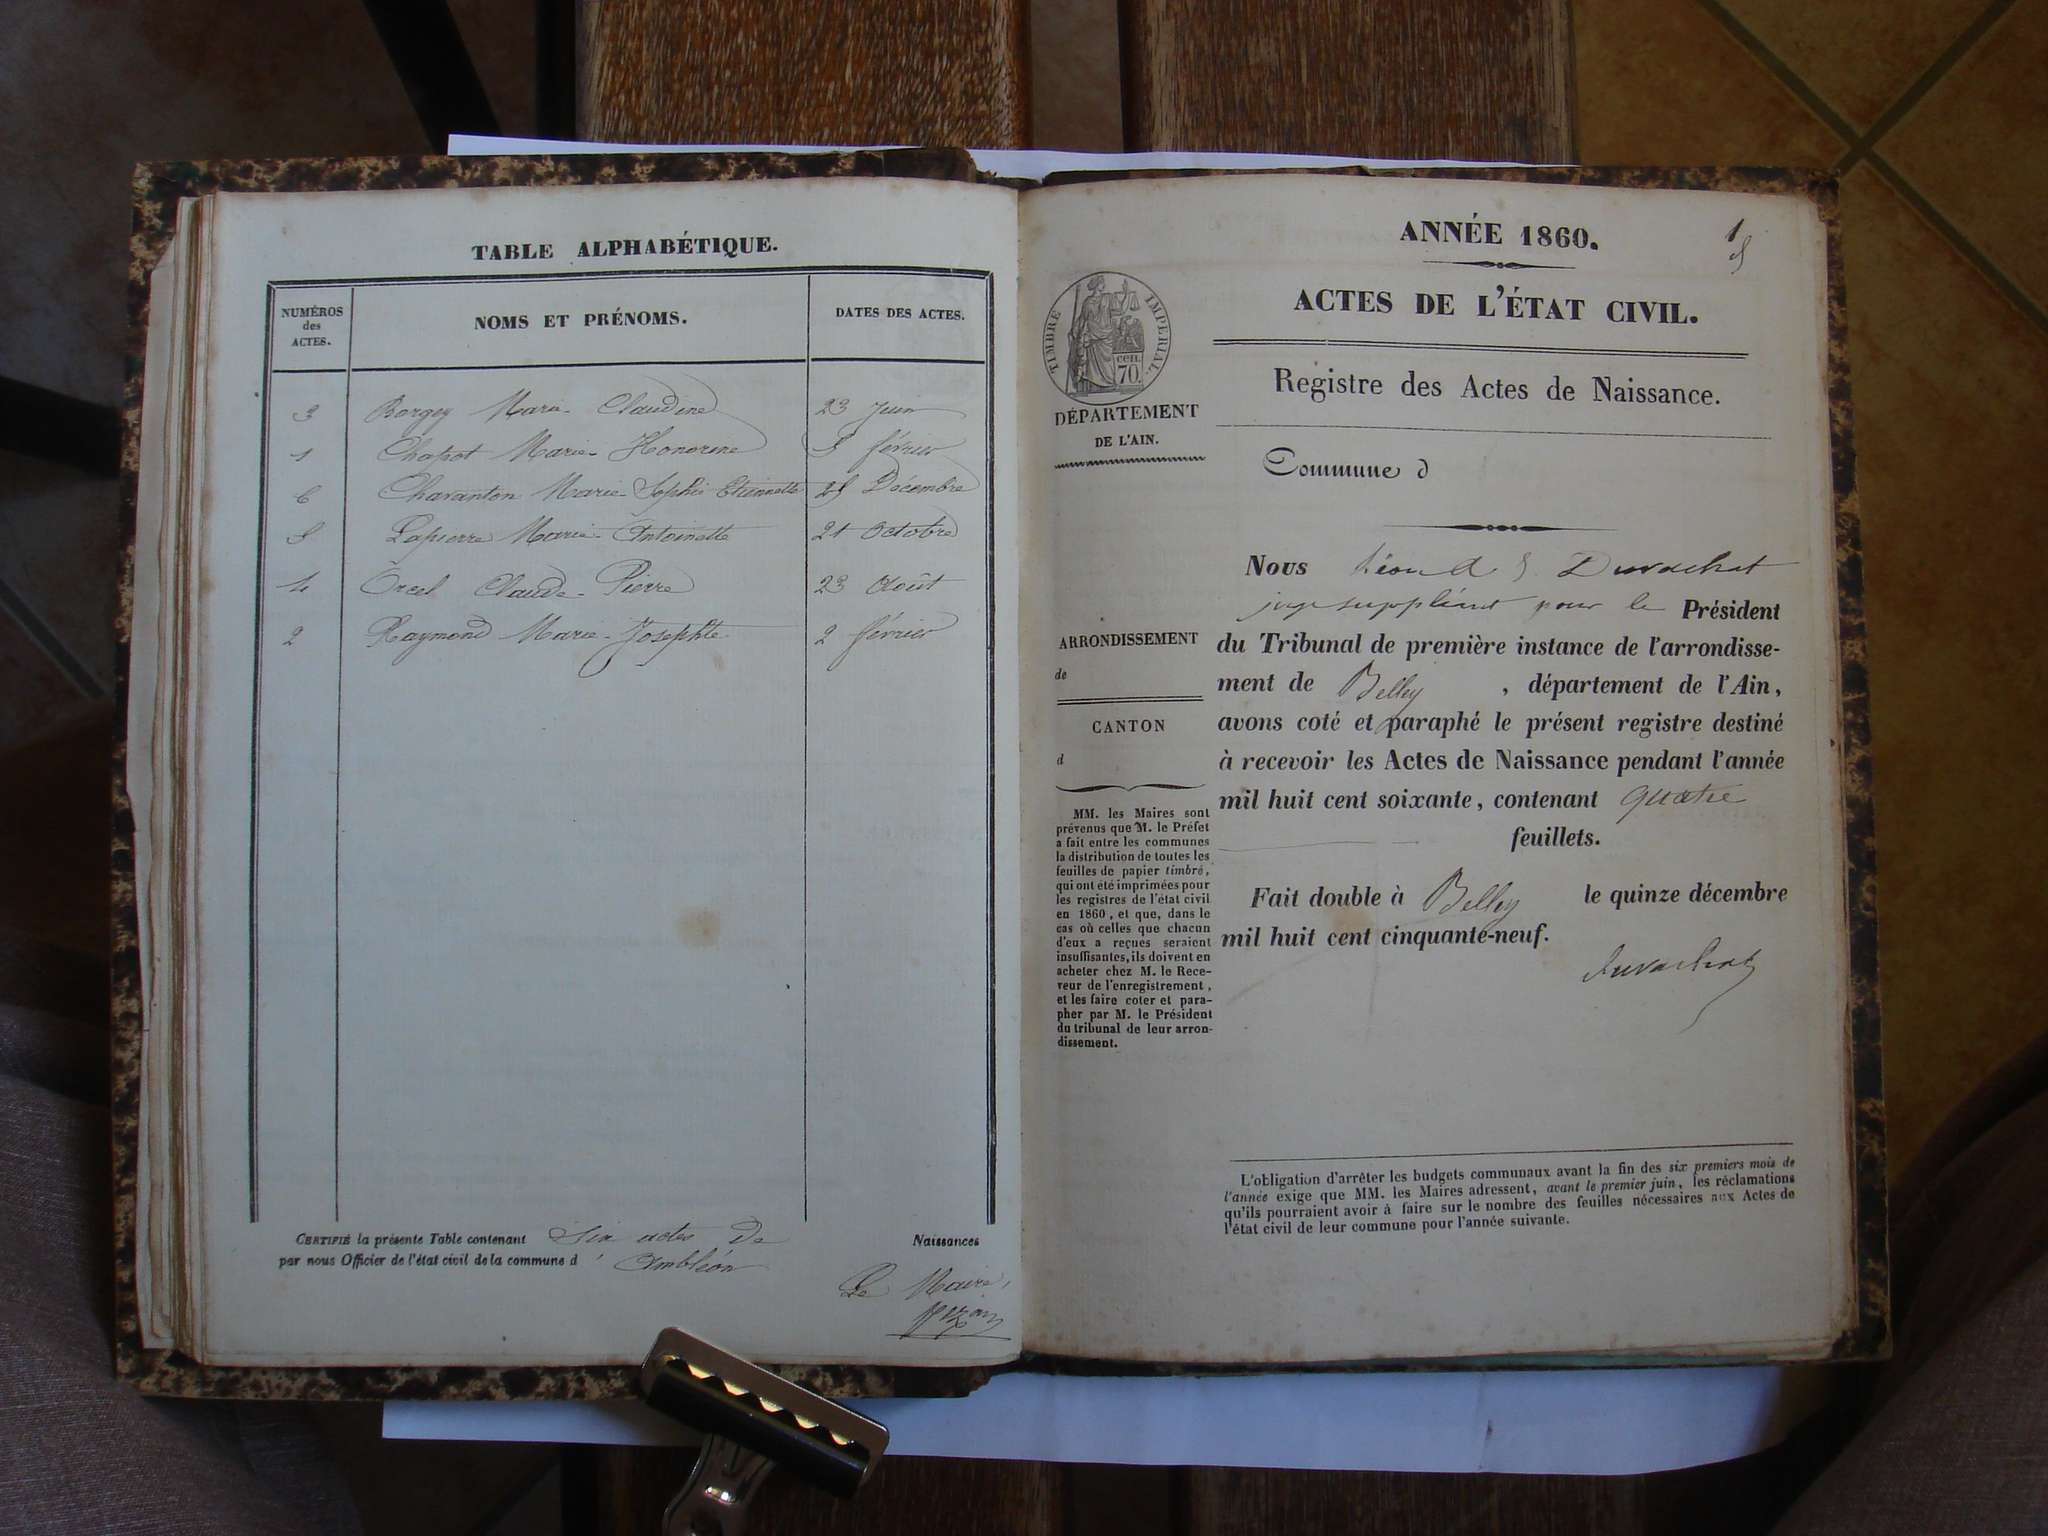 TABLE ALPHABÉTIQUE.
NUMÉROS
des
ACTES.
NOMS ET PRÉNOMS.
DATES DES ACTES.
3 Borgey Marie-Claudine 23 Juin
1 Chapot Marie-Honorine février
6 Charanton Marie-Sophie Etiennette 25 Décembre
5 Lapierre Marie-Antoinette 21 Octobre
4 Orcel Claude-Pierre 23 Août
2 Raymond Marie-Josephte 2 février
CERTIFIÉ la présente Table contenant Six actes de Naissances
par nous Officier de l'état civil de la commune d' Ambléon
Le Maire,
ANNÉE 1860.
1
TIMBRE IMPÉRIAL
cen.
70
ACTES DE L'ÉTAT CIVIL.
Registre des Actes de Naissance.
DÉPARTEMENT
DE L'AIN.
Commune d
Nous Duvachat
juge suppléant pour le Président
du Tribunal de première instance de l'arrondisse-
ment de Belley, département de l'Ain,
avons coté et paraphé le présent registre destiné
à recevoir les Actes de Naissance pendant l'année
mil huit cent soixante, contenant quatre
feuillets.
Fait double à Belley le quinze décembre
mil huit cent cinquante-neuf.
Duvachat
ARRONDISSEMENT
de
CANTON
d
MM. les Maires sont
prévenus que M. le Préfet
a fait entre les communes
la distribution de toutes les
feuilles de papier timbré,
qui ont été imprimées pour
les registres de l'état civil
en 1860, et que, dans le
cas où celles que chacun
d'eux a reçues seraient
insuffisantes, ils doivent en
acheter chez M. le Rece-
veur de l'enregistrement,
et les faire coter et para-
pher par M. le Président
du tribunal de leur arron-
dissement.
L'obligation d'arrêter les budgets communaux avant la fin des six premiers mois de
l'année exige que MM. les Maires adressent, avant le premier juin, les réclamations
qu'ils pourraient avoir à faire sur le nombre des feuilles nécessaires aux Actes de
l'état civil de leur commune pour l'année suivante.